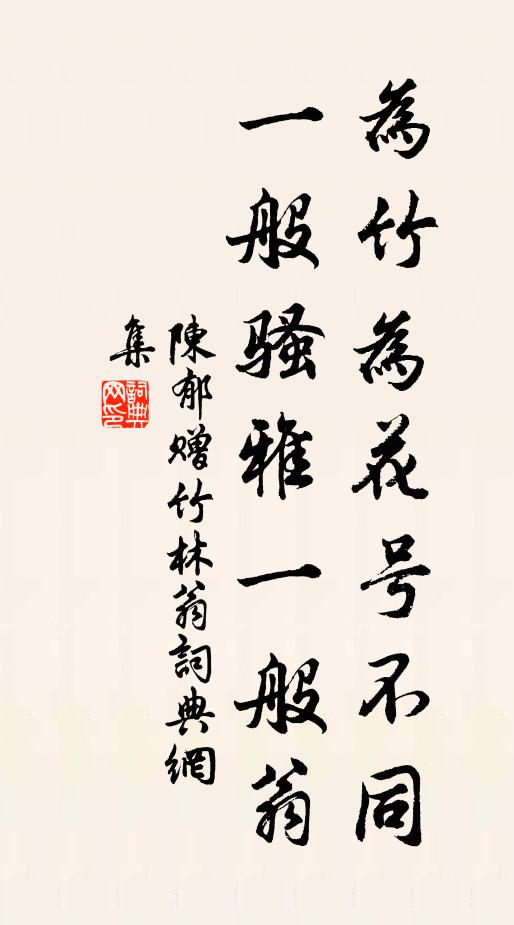 為竹為花号不同
一般骚雅一般翁
陳郁赠竹林翁詞典網
集
詞典网印